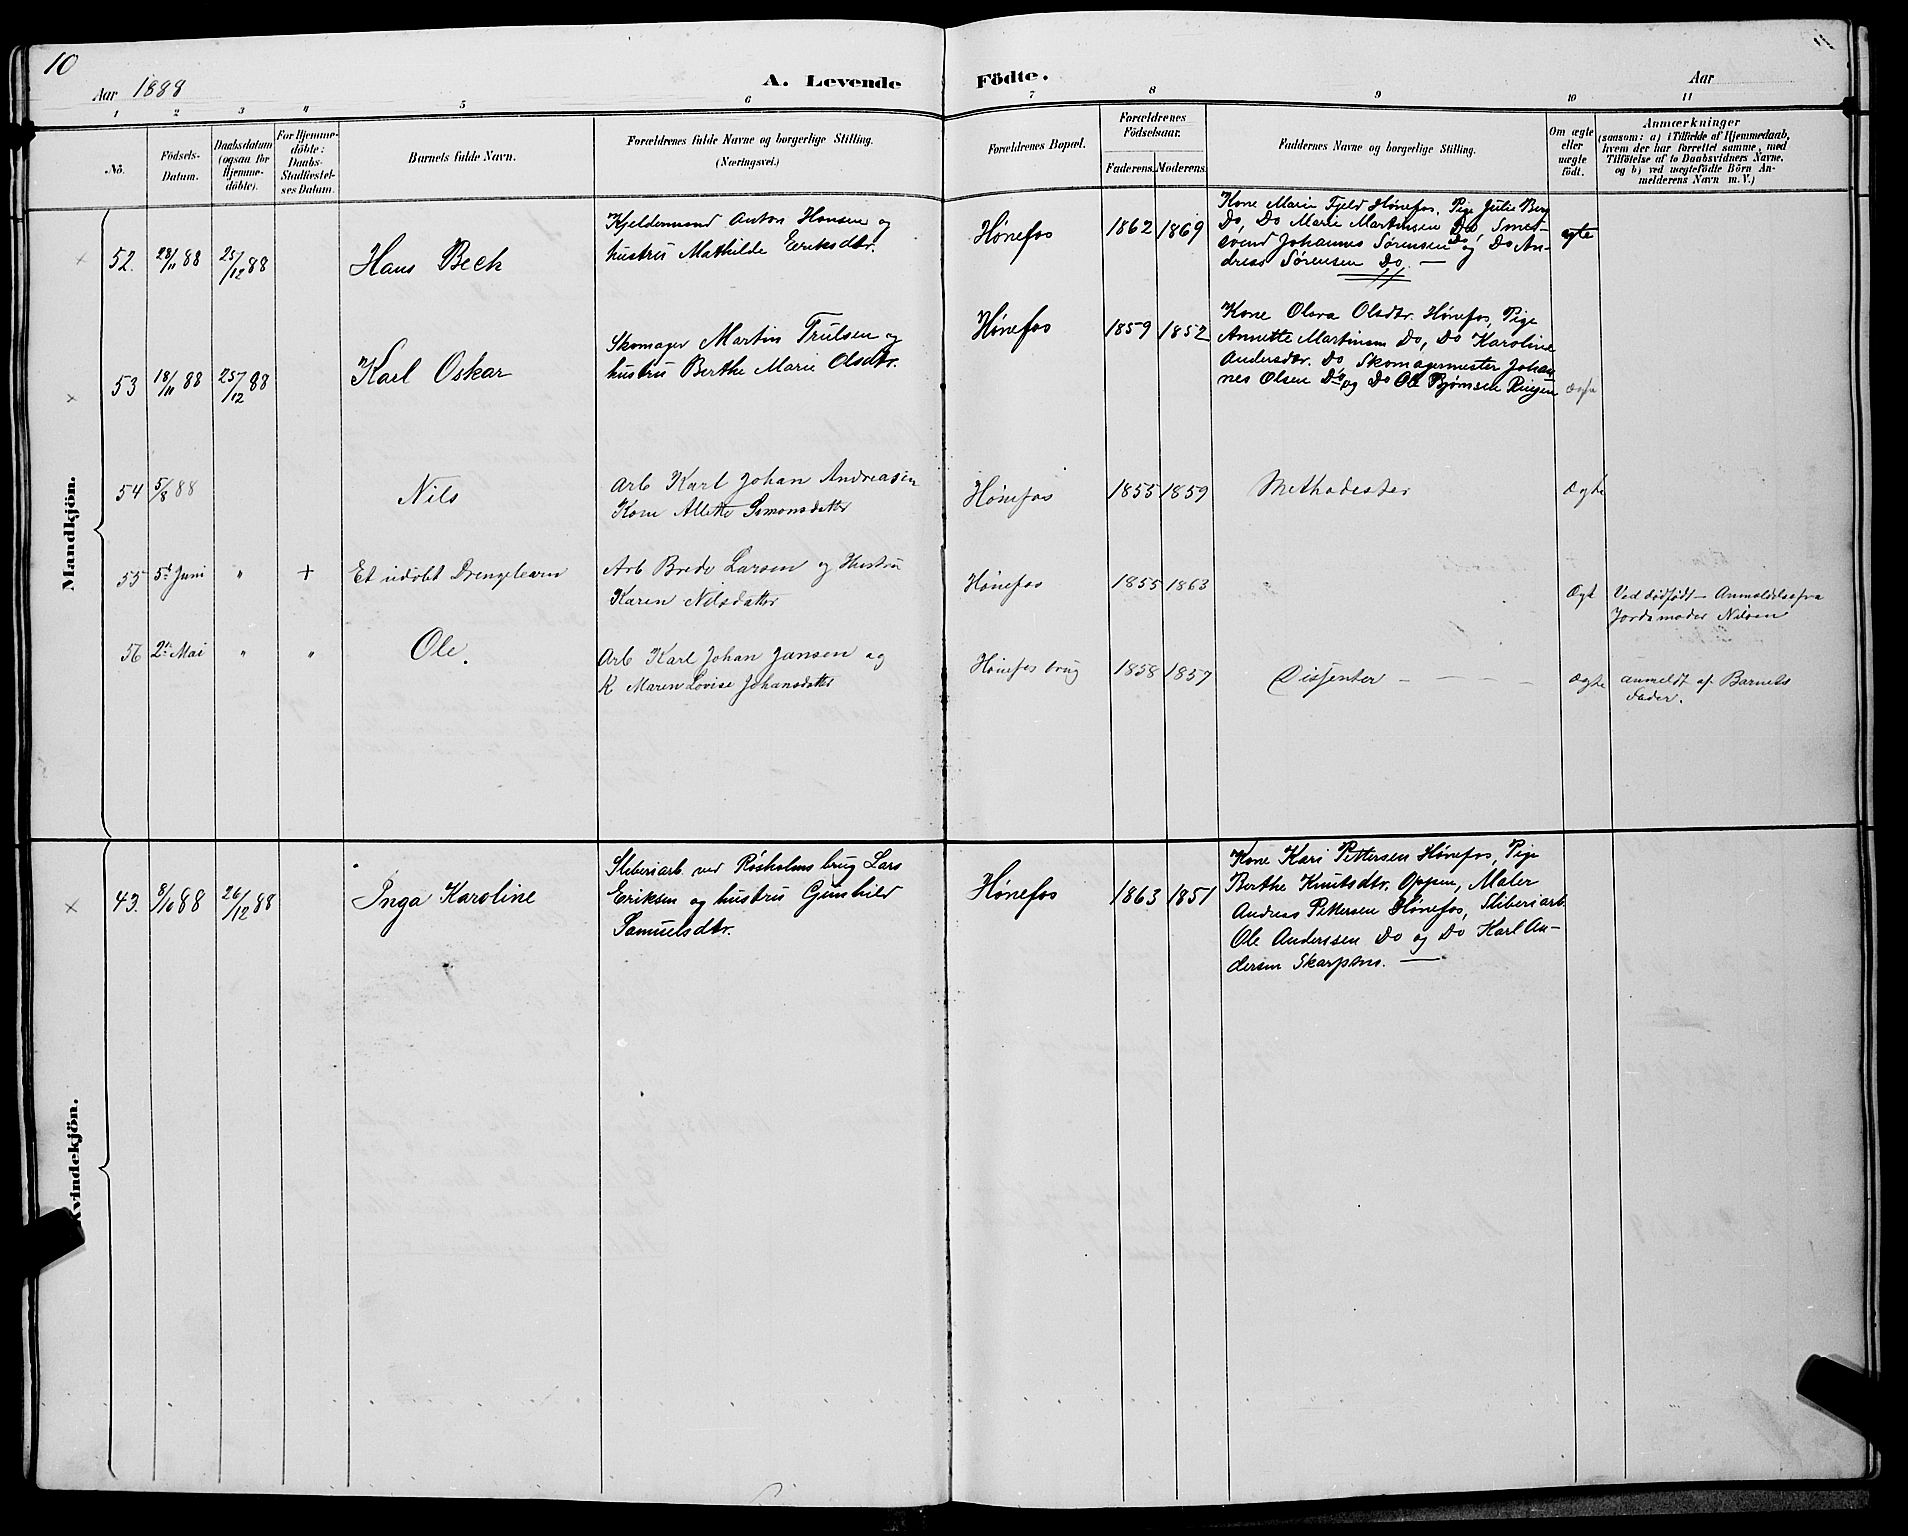 10
11
Aar 1888
A. Levende Födte.
Aar
1 2 3 4 5 6 7 8 9 10 11
No.
Födsels-
Datum.
Daabsdatum
(ogsaa for
Hjemme-
döbte).
For Hjemme-
döbte:
Daabs-
Stadfæstel-
ses Datum.
Barnets fulde Navn.
Forældrenes fulde Navne og borgerlige Stilling.
(Næringsvei.)
Forældrenes Bopæl.
Forældrenes
Födselsaar.
Faderens. Moderens.
Faddernes Navne og borgerlige Stilling.
Om ægte
eller
uægte
født.
Anmærkninger
(saasom: a) i Tilfælde af Hjemmedaab,
hvem der har forrettet samme, med
Tilföielse af to Daabsvidners Navne,
og b) ved uægtefödte Börn An-
melderens Navn m. V.)
Mandkjön.
52. 28/11 88 25/12 88
Hans Beck
Kjeldermand Anton Hansen og
hustru Mathilde Eeriksdtr.
Hønefos
1862 1869
Kone Marie Fjeld Hønefos, Pige Julie Berg
Do, Do Marie Martinsen Do, Smed-
svend Johannes Sørensen Do og Do An-
dreas Sørensen Do. —
ægte
53 18/11 88 25/12 88
Karl Oskar
Skomager Martin Trulsen og
hustru Berthe Marie Olsdtr.
Hønefos
1859 1852
Kone Olava Olsdtr. Hønefos, Pige
Annette Martinsen Do, Do Karoline
Andersdtr. Do, Skomagermester Johan-
nes Olsen Do og Do Ole Bjørnsen Ringen
Ægte
54 5/8 88
Nils
Arb Karl Johan Andreasen
Kone Allette Simonsdatter
Hønefos
1855 1859
Methodister
Ægte
55 5t Juni " +
Et udøbt Drengebarn
Arb Brede Larsen og Hustru
Karen Nilsdatter
Hønefos
1855 1863
Ægt
Ved dødfødt — Anmeldelse fra
Jordemoder Nilsen
56 2n Mai " "
Ole.
Arb Karl Johan Jansen og
K Maren Lovise Johansdatter
Hønefos brug
1858 1857
Dissenter — — — —
Ægte
anmeldt af Barnets
Fader.
Kvindekjön.
43. 8/10 88 26/12 88
Inga Karoline
Sliberiarb. ved Røsholms brug Lars
Eriksen og hustru Gunhild
Samuelsdtr.
Hønefos
1863 1851
Kone Kari Pettersen Hønefos, Pige
Berthe Knutsdtr. Oppen, Maler
Andreas Pettersen Hønefos, Sliberiarb
Ole Anderssen Do og Do Karl An-
dersen Skarpsno. —